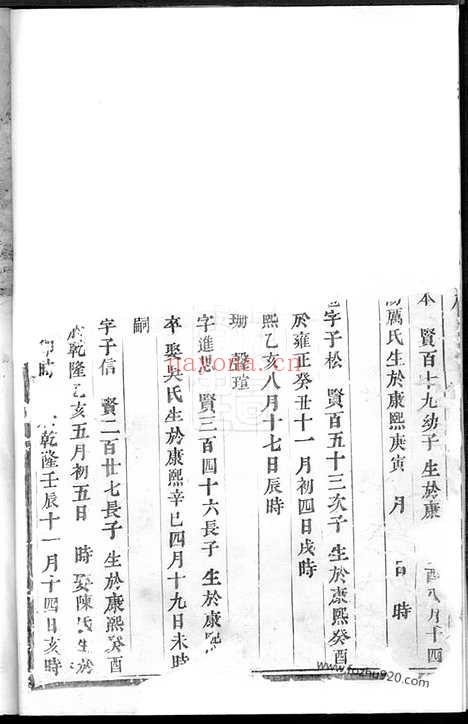 本 賢百十九幼子 生於康 酉八月十四
萬氏生於康熙庚寅 月 日 時
字于松 賢百五十三次子 生於康熙癸酉
於雍正癸丑十一月初四日戌時
熙乙亥八月十七日辰時
珊 馨 瑄
字進思 賢三百四十六長子 生於康
卒 娶吳氏生於康熙辛巳四月十九日未時
嗣
字子信 賢二百廿七長子 生於康熙癸酉
乾隆乙亥五月初五日 時 娶陳氏生於
時 乾隆壬辰十一月十四日亥時
nayona.cn
www.fozhu920.com